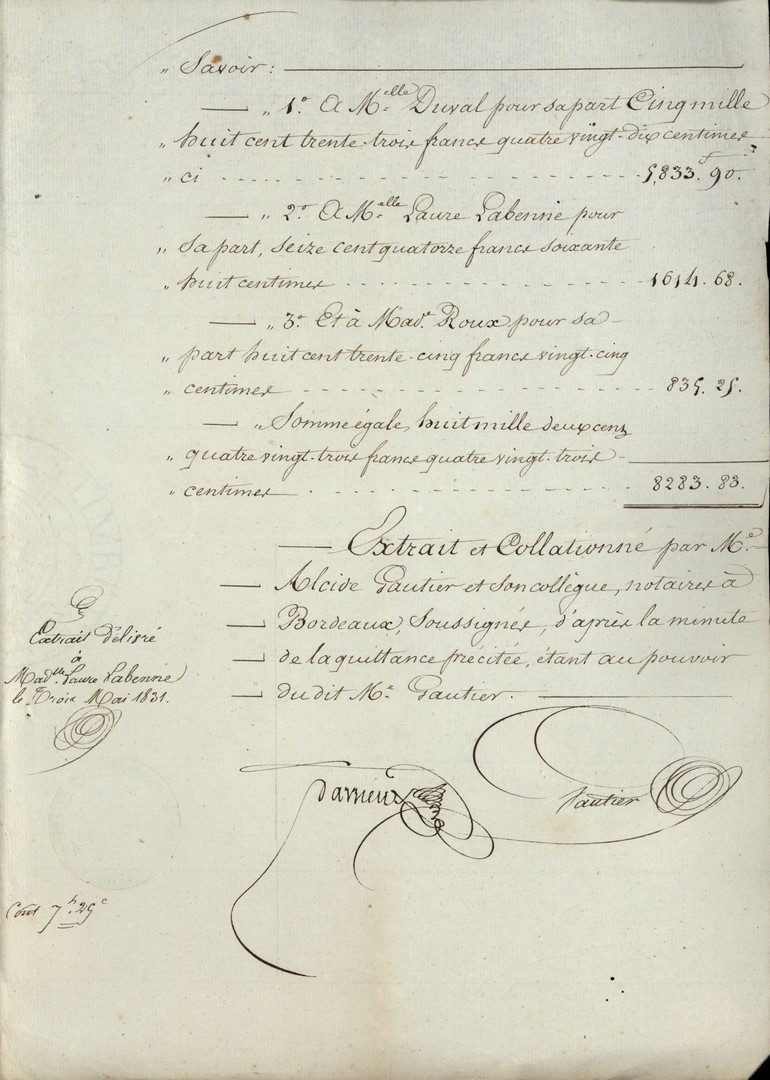 „ Savoir :
„ 1.° A M.elle Duval pour sa part Cinq mille
„ huit cent trente-trois francs quatre vingt-dix centimes
„ ci 5,833.f 90.
„ 2.° A M.elle Laure Labennie pour
„ sa part, seize cent quatorze francs soixante
„ huit centimes 1614. 68.
„ 3.° Et à Mad.e Roux pour sa
„ part huit cent trente-cinq francs vingt-cinq
„ centimes 835. 25.
„ Somme égale, huit mille deux cent
„ quatre vingt-trois francs quatre vingt-trois
„ centimes 8283. 83.
Extrait et Collationné par M.e
Alcide Gautier et son collègue, notaires à
Bordeaux, Soussignés, d'après la minute
de la quittance précitée, étant au pouvoir
du dit M.e Gautier.
Extrait délivré
à
Mad.lle Laure Labennie
le Trois Mai 1831.
Darrieux
Gautier
Cout 7.f. 25c